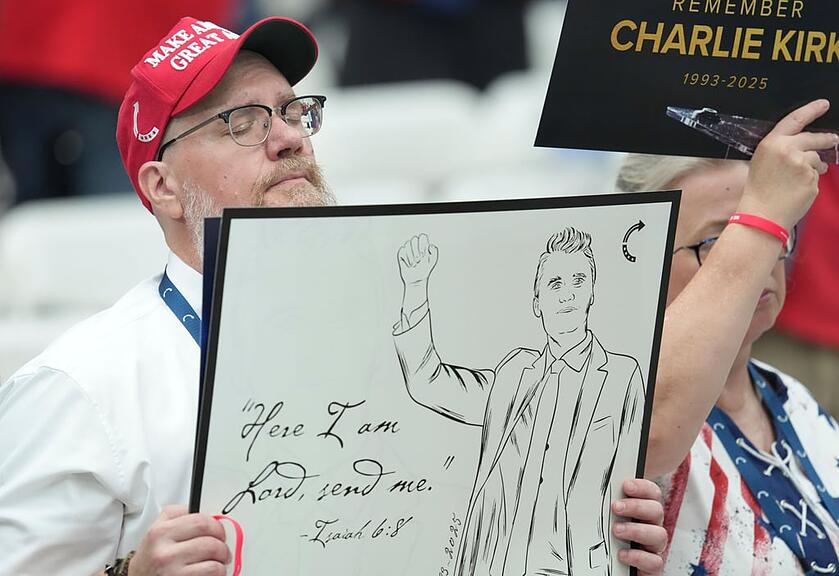 MAKE AM
GREAT A
REMEMBER
CHARLIE KIRK
1993-2025
"Here I am
Lord, send me."
-Isaiah 6:8
3-2025